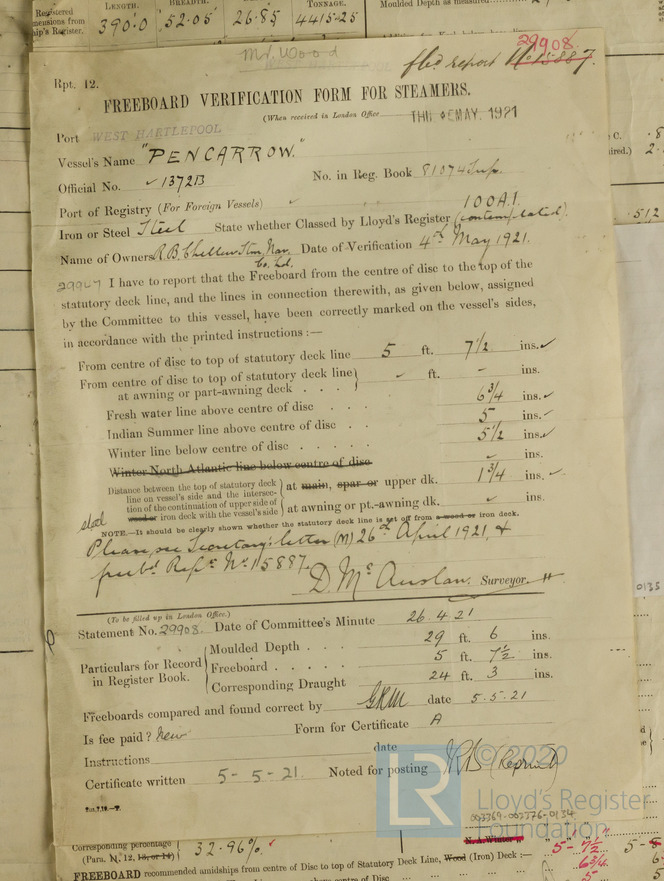 Registered
LENGTH. BREADTH. TONNAGE.
Moulded Depth as measured
ship's Register. 390.0 52.05 26.85 4415.25
Mr. Wood
fbd report No 15887.
29908
Rpt. 12.
FREEBOARD VERIFICATION FORM FOR STEAMERS.
(When received in London Office THU 5 MAY. 1921
Port WEST HARTLEPOOL
Vessel's Name "PENCARROW."
Official No. 1372B No. in Reg. Book 81074 Sup.
Port of Registry (For Foreign Vessels)
100A.1.
Iron or Steel Steel State whether Classed by Lloyd's Register (contemplated).
Name of Owners R.B. Chellew Stm. Nav. Co. Ld. Date of Verification 4th May 1921.
29907 I have to report that the Freeboard from the centre of disc to the top of the
statutory deck line, and the lines in connection therewith, as given below, assigned
by the Committee to this vessel, have been correctly marked on the vessel's sides,
in accordance with the printed instructions :—
From centre of disc to top of statutory deck line 5 ft. 7 1/2 ins.
From centre of disc to top of statutory deck line
at awning or part-awning deck . . . - ft. - ins.
Fresh water line above centre of disc . . 6 3/4 ins.
Indian Summer line above centre of disc . . 5 ins.
Winter line below centre of disc . . . . . 5 1/2 ins.
Winter North Atlantic line below centre of disc - ins.
Distance between the top of statutory deck
line on vessel's side and the intersec-
tion of the continuation of upper side of
wood or iron deck with the vessel's side
at main, spar or upper dk. 1 3/4 ins.
at awning or pt.-awning dk. ins.
steel
NOTE.—It should be clearly shown whether the statutory deck line is set off from a wood or iron deck.
Please see Secretary's letter (M) 26th April 1921, &
freebd. Rept. No. 15887.
D. Mc Auslan. Surveyor.
(To be filled up in London Office.)
Statement No. 29908. Date of Committee's Minute 26.4.21
Particulars for Record
in Register Book.
Moulded Depth . . . 29 ft. 6 ins.
Freeboard . . . . . 5 ft. 7 1/2 ins.
Corresponding Draught 24 ft. 3 ins.
Freeboards compared and found correct by GRM date 5.5.21
Is fee paid? New Form for Certificate A
Instructions date
Certificate written 5-5-21. Noted for posting (Reprint)
© 2020
LR
Lloyd's Register
Foundation
003369-003376-0134
Corresponding percentage
(Para. N. 12, 13, or 14) 32.96%
N.A. Winter
5-7 1/2
6 3/4
5
FREEBOARD recommended amidships from centre of Disc to top of Statutory Deck Line, Wood (Iron) Deck :—